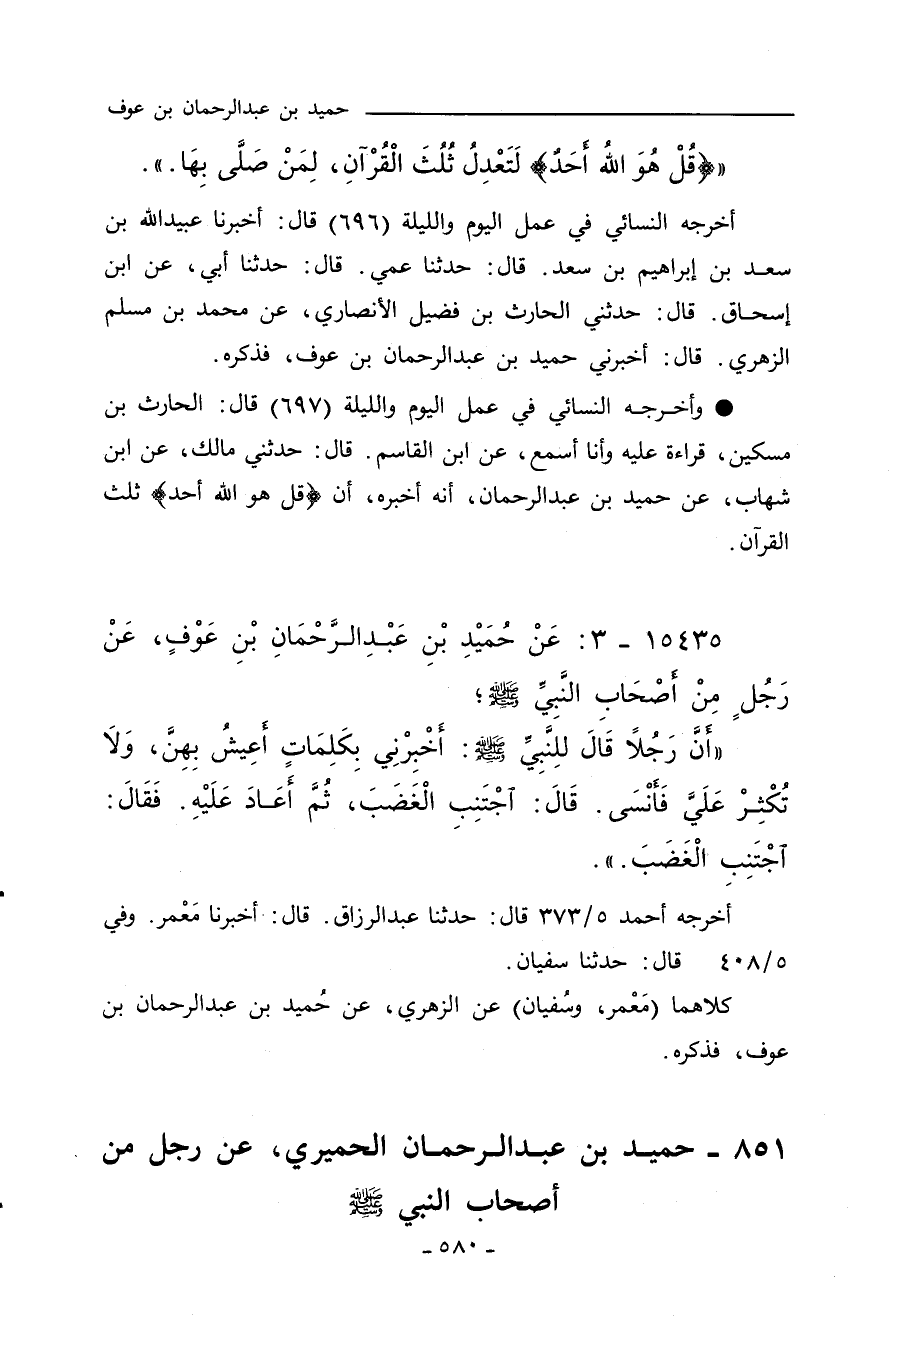 حميد بن عبدالرحمان بن عوف
«﴿قُلْ هُوَ اللهُ أَحَدٌ﴾ لَتَعْدِلُ ثُلُثَ الْقُرْآنِ، لِمَنْ صَلَّى بِهَا.».
أخرجه النسائي في عمل اليوم والليلة (٦٩٦) قال: أخبرنا عبيدالله بن
سعد بن إبراهيم بن سعد. قال: حدثنا عمي. قال: حدثنا أبي، عن ابن
إسحاق. قال: حدثني الحارث بن فضيل الأنصاري، عن محمد بن مسلم
الزهري. قال: أخبرني حميد بن عبدالرحمان بن عوف، فذكره.
● وأخرجه النسائي في عمل اليوم والليلة (٦٩٧) قال: الحارث بن
مسكين، قراءة عليه وأنا أسمع، عن ابن القاسم. قال: حدثني مالك، عن ابن
شهاب، عن حميد بن عبدالرحمان، أنه أخبره، أن ﴿قل هو الله أحد﴾ ثلث
القرآن.
١٥٤٣٥ - ٣: عَنْ حُمَيْدِ بْنِ عَبْدِالرَّحْمَانِ بْنِ عَوْفٍ، عَنْ
رَجُلٍ مِنْ أَصْحَابِ النَّبِيِّ ﷺ؛
«أَنَّ رَجُلًا قَالَ لِلنَّبِيِّ ﷺ: أَخْبِرْنِي بِكَلِمَاتٍ أَعِيشُ بِهِنَّ، وَلَا
تُكْثِرْ عَلَيَّ فَأَنْسَى. قَالَ: اَجْتَنِبِ الْغَضَبَ، ثُمَّ أَعَادَ عَلَيْهِ. فَقَالَ:
اَجْتَنِبِ الْغَضَبَ.».
أخرجه أحمد ٣٧٣/٥ قال: حدثنا عبدالرزاق. قال: أخبرنا مَعْمر. وفي
٤٠٨/٥ قال: حدثنا سفيان.
كلاهما (مَعْمر، وسُفيان) عن الزهري، عن حُميد بن عبدالرحمان بن
عوف، فذكره.
٨٥١ - حميد بن عبدالرحمان الحميري، عن رجل من
أصحاب النبي ﷺ
- ٥٨٠ -